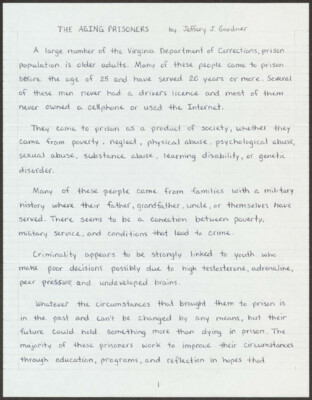 THE AGING PRISONERS by Jeffery J. Goodner
A large number of the Virginia Department of Corrections, prison
population is older adults. Many of these people came to prison
before the age of 25 and have served 20 years or more. Several
of these men never had a drivers licence and most of them
never owned a cellphone or used the Internet.
They came to prison as a product of society, whether they
came from poverty, neglect, physical abuse, psychological abuse,
sexual abuse, substance abuse, learning disability, or genetic
disorder.
Many of these people came from families with a military
history where their father, grandfather, uncle, or themselves have
served. There seems to be a conection between poverty,
military service, and conditions that lead to crime.
Criminality appears to be strongly linked to youth who
make poor decisions possibly due to high testosterone, adrenaline,
peer pressure, and undeveloped brains.
Whatever the circumstances that brought them to prison is
in the past and can't be changed by any means, but their
future could hold something more than dying in prison. The
majority of these prisoners work to improve their circumstances
through education, programs, and reflection in hopes that
1